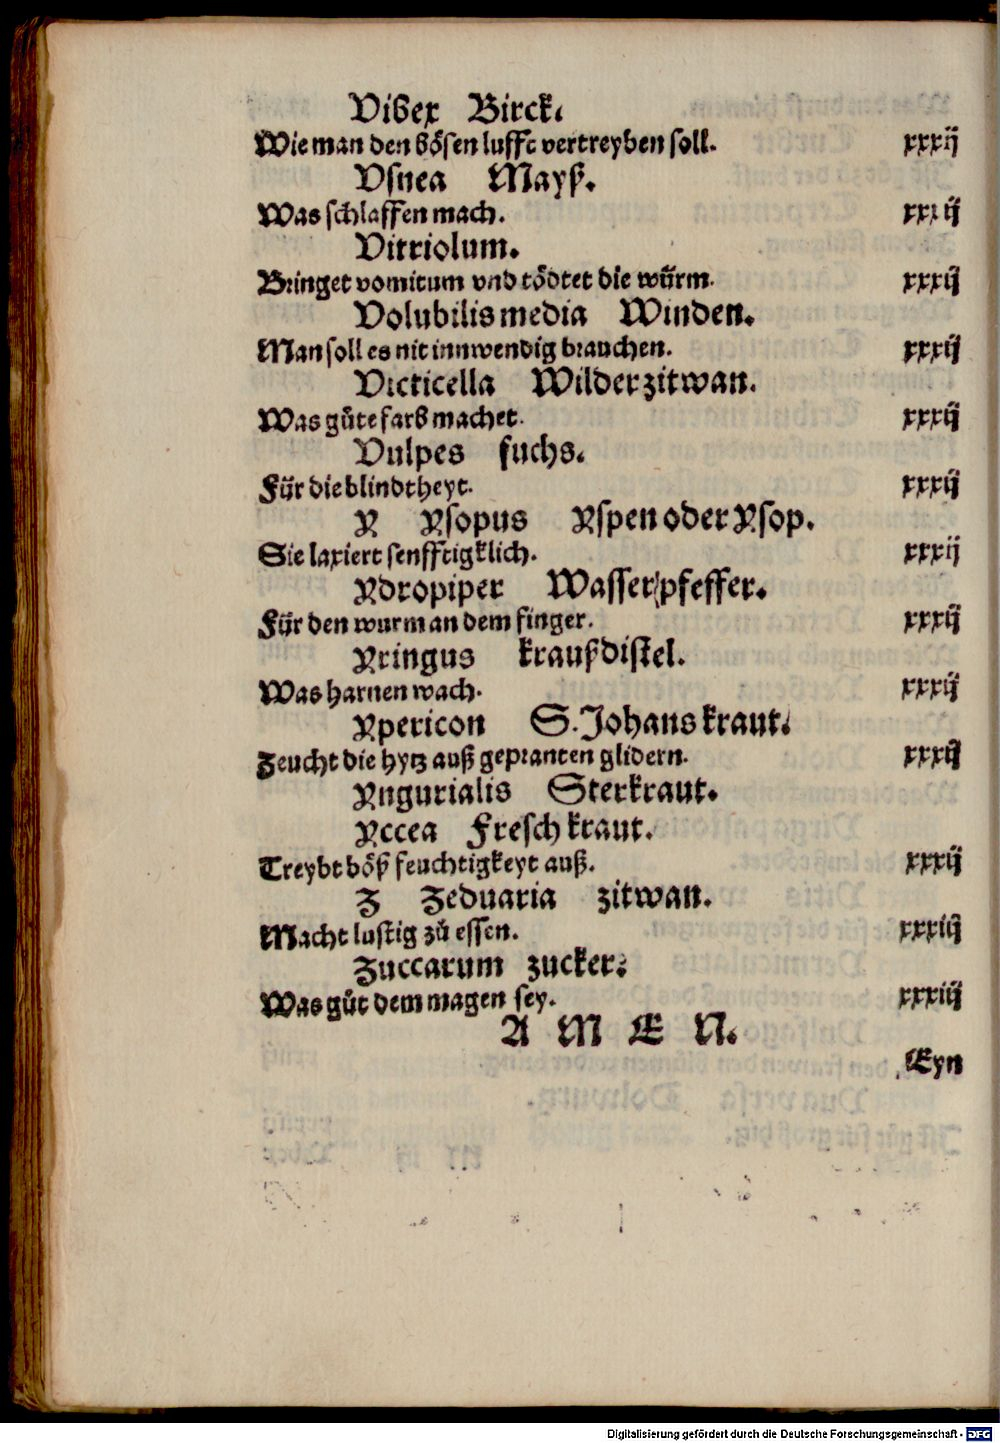 Vibex Birck.
Wie man den bösen lufft vertreyben soll. xxxij
Vsnea Mayß.
Was schlaffen mach. xxxij
Vitriolum.
Bringet vomitum vnd tödtet die würm. xxxij
Volubilis media Winden.
Man soll es nit innwendig brauchen. xxxij
Victicella Wilder zitwan.
Was gůte farb machet. xxxij
Vulpes fuchs.
Für die blindtheyt. xxxij
Y Ysopus Yspen oder Ysop.
Sie laxiert senfftigklich. xxxij
Ydropiper Wasser pfeffer.
Für den wurm an dem finger. xxxij
Yringus kraußdistel.
Was harnen mach. xxxij
Ypericon S. Johans kraut.
Zeucht die hytz auß gepranten glidern. xxxij
Yngurialis Sterkraut.
Yccea Fresch kraut.
Treybt böß feuchtigkeyt auß. xxxij
Z Zeduaria zitwan.
Macht lustig zů essen. xxxiij
Zuccarum zucker.
Was gůt dem magen sey. xxxiij
A M E N.
Eyn
Digitalisierung gefördert durch die Deutsche Forschungsgemeinschaft - DFG